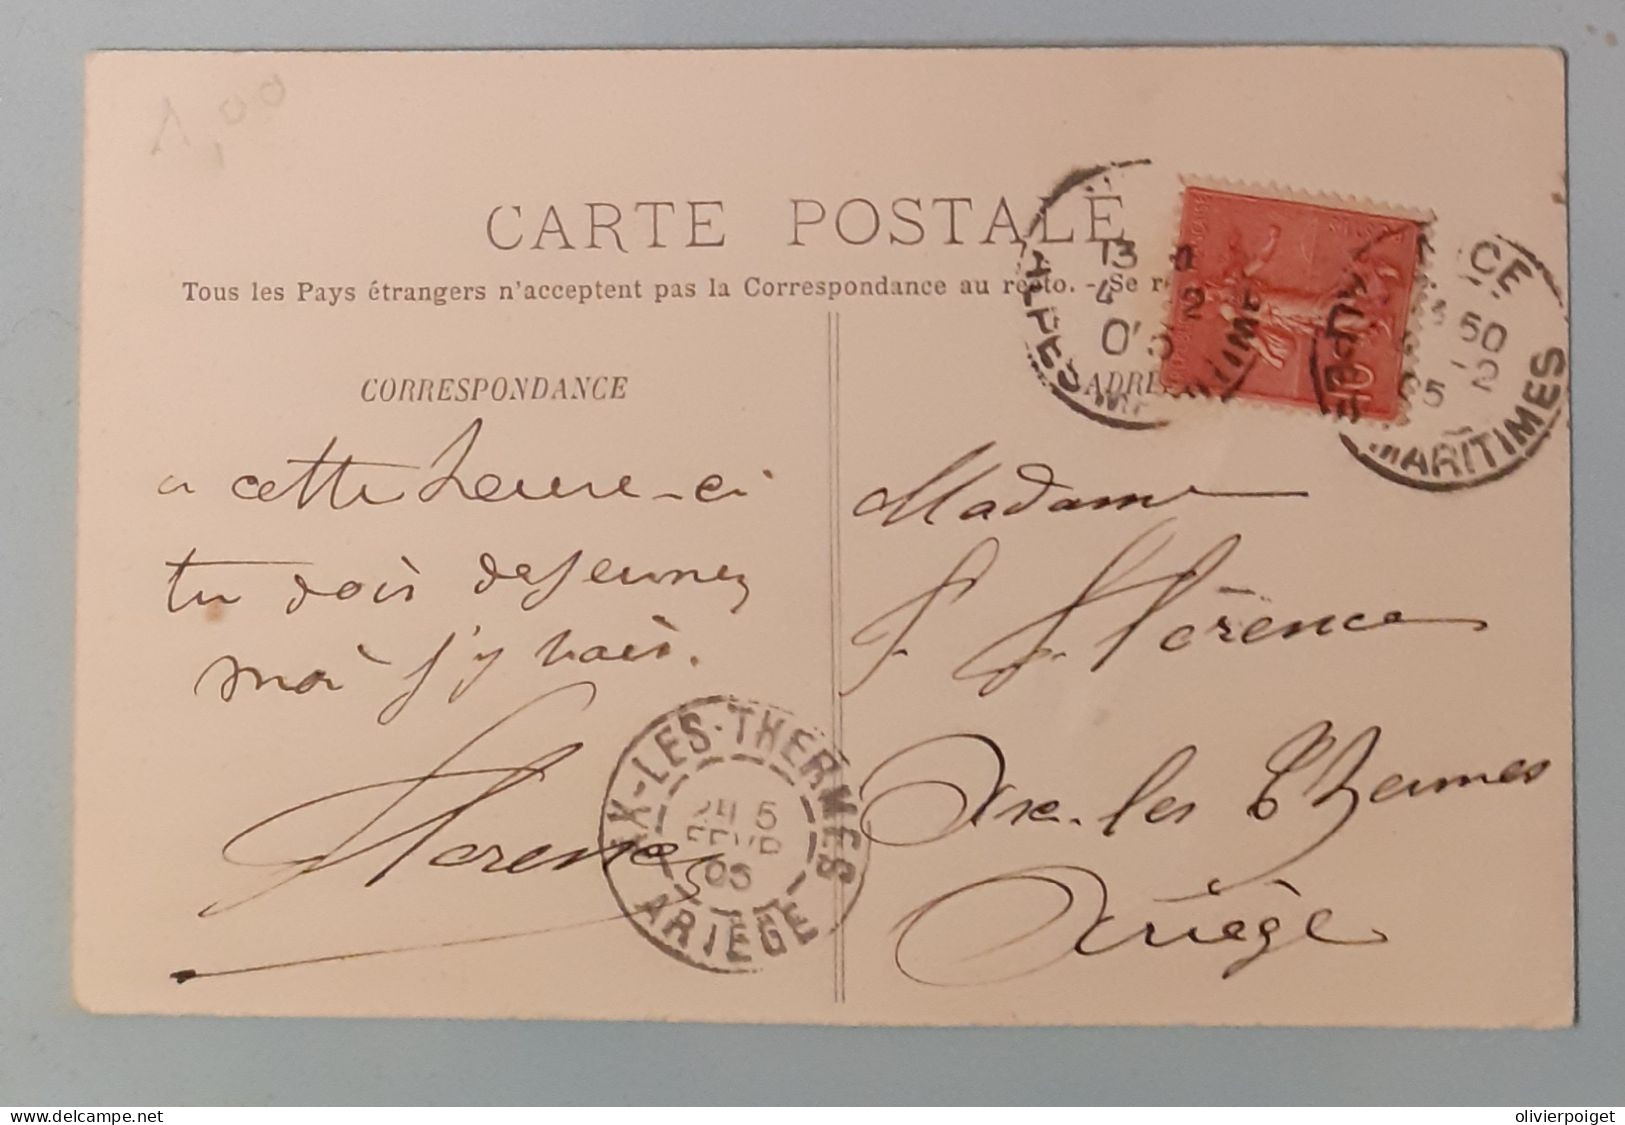 1,00
CARTE POSTALE
Tous les Pays étrangers n'acceptent pas la Correspondance au recto. - Se r
CORRESPONDANCE
a cette heure-ci
tu dois dejeuner
moi j'y vais.
Florence
AX-LES-THERMES
5
FEVR
05
ARIÈGE
13
4 2
05
ALPES MARITIMES
CE
50
2
05
ALPES MARITIMES
10
ADRE
Madame
F. Florence
Ax-les Thermes
Ariège
delcampe.net
olivierpoiget